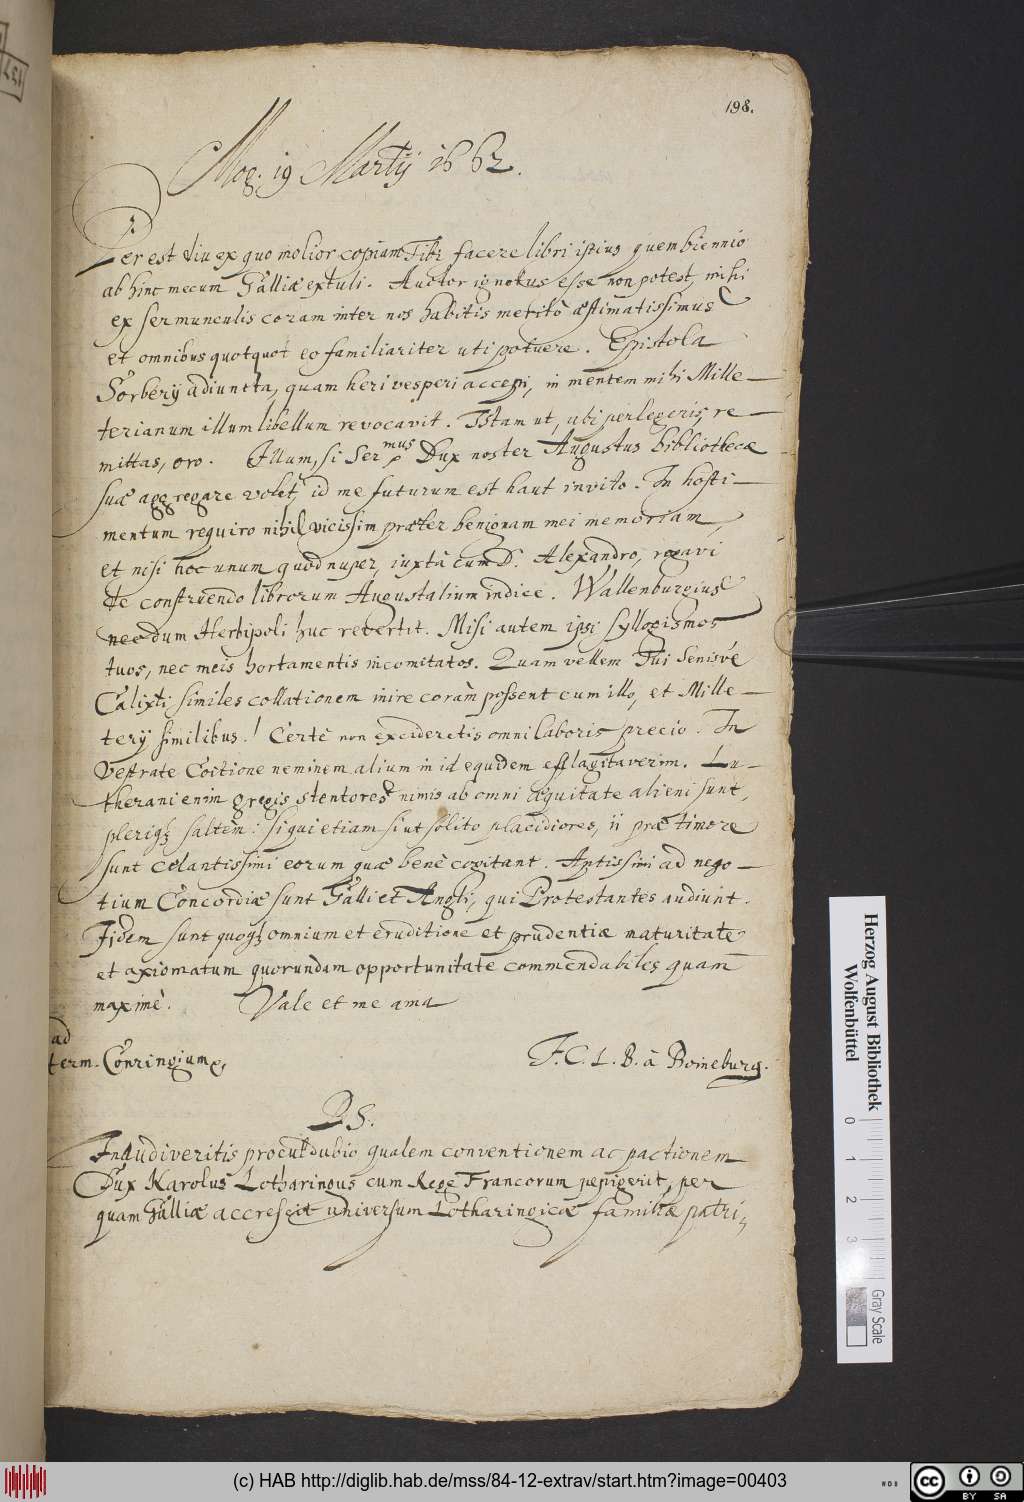 198.
Mog. 19 Martij 1662.
Per est diu ex quo molior copiam Tibi facere libri istius quem biennio
ab hinc mecum Galliæ extuli. Auctor ignotus esse non potest, mihi
ex sermunculis coram inter nos habitis meritò æstimatissimus
et omnibus quotquot eo familiariter uti potuere. Epistola
Sorberij adiuncta, quam heri vesperi accepi, in mentem mihi Mille-
terianum illum libellum revocavit. Istam ut, ubi perlegeris, re-
mittas, oro. Illum, si Ser.mus Dux noster Augustus bibliothecæ
suæ aggregare volet, id me futurum est haut invito. In hosti-
mentum requiro nihil vicissim præter benignam mei memoriam,
et nisi hoc unum quod nuper, iuxtà cum D. Alexandro, rogavi
de construendo librorum Augustalium indice. Wallenburgius
necdum Herbipoli huc revertit. Misi autem ipsi syllogismos
tuos, nec meis hortamentis incomitatos. Quam vellem Tui Senisvé
Calixti similes collationem inire coràm possent cum illo, et Mille-
terij similibus! Certè non excideretis omni laboris precio. In
vestrate Coitione neminem alium in id equidem efflagitaverim. Lu-
therani enim gregis stentores nimis ab omni æquitate alieni sunt,
pleriqz saltèm: si qui etiam sint solito placidiores, ii præ timore
sunt celantissimi eorum quæ benè cogitant. Aptissimi ad nego-
tium Concordiæ sunt Galli et Angli, qui Protestantes audiunt.
Iidem sunt quoqz omnium et eruditione et prudentiæ maturitate
et axiomatum quorundam opportunitate commendabiles quam
maximè. Vale et me ama
ad
Herm. Conringium
F. C. L. B. à Boineburg.
P.S.
Inaudiveritis proculdubio qualem conventionem ac pactionem
Dux Karolus Lotharingus cum Rege Francorum pepigerit, per
quam Galliæ accrescit universum Lotharingicæ familiæ patri-
Herzog August Bibliothek
Wolfenbüttel
0 1 2 3
Gray Scale
(c) HAB http://diglib.hab.de/mss/84-12-extrav/start.htm?image=00403
cc BY SA